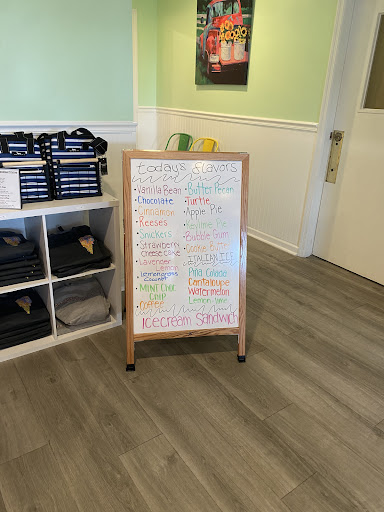 todays flavors
• Vanilla Bean
• Chocolate
• Cinnamon
• Reeses
• Snickers
• Strawberry
Cheesecake
• Lavender
Lemon
• Lemongrass
Coconut
• Mint Choc
Chip
• Coffee
• Butter Pecan
• Turtle
• Apple Pie
• Keylime Pie
• Bubble Gum
• Cookie Butter
ITALIAN ICE
Piña Colada
Cantaloupe
Watermelon
Lemon-lime
Icecream Sandwich